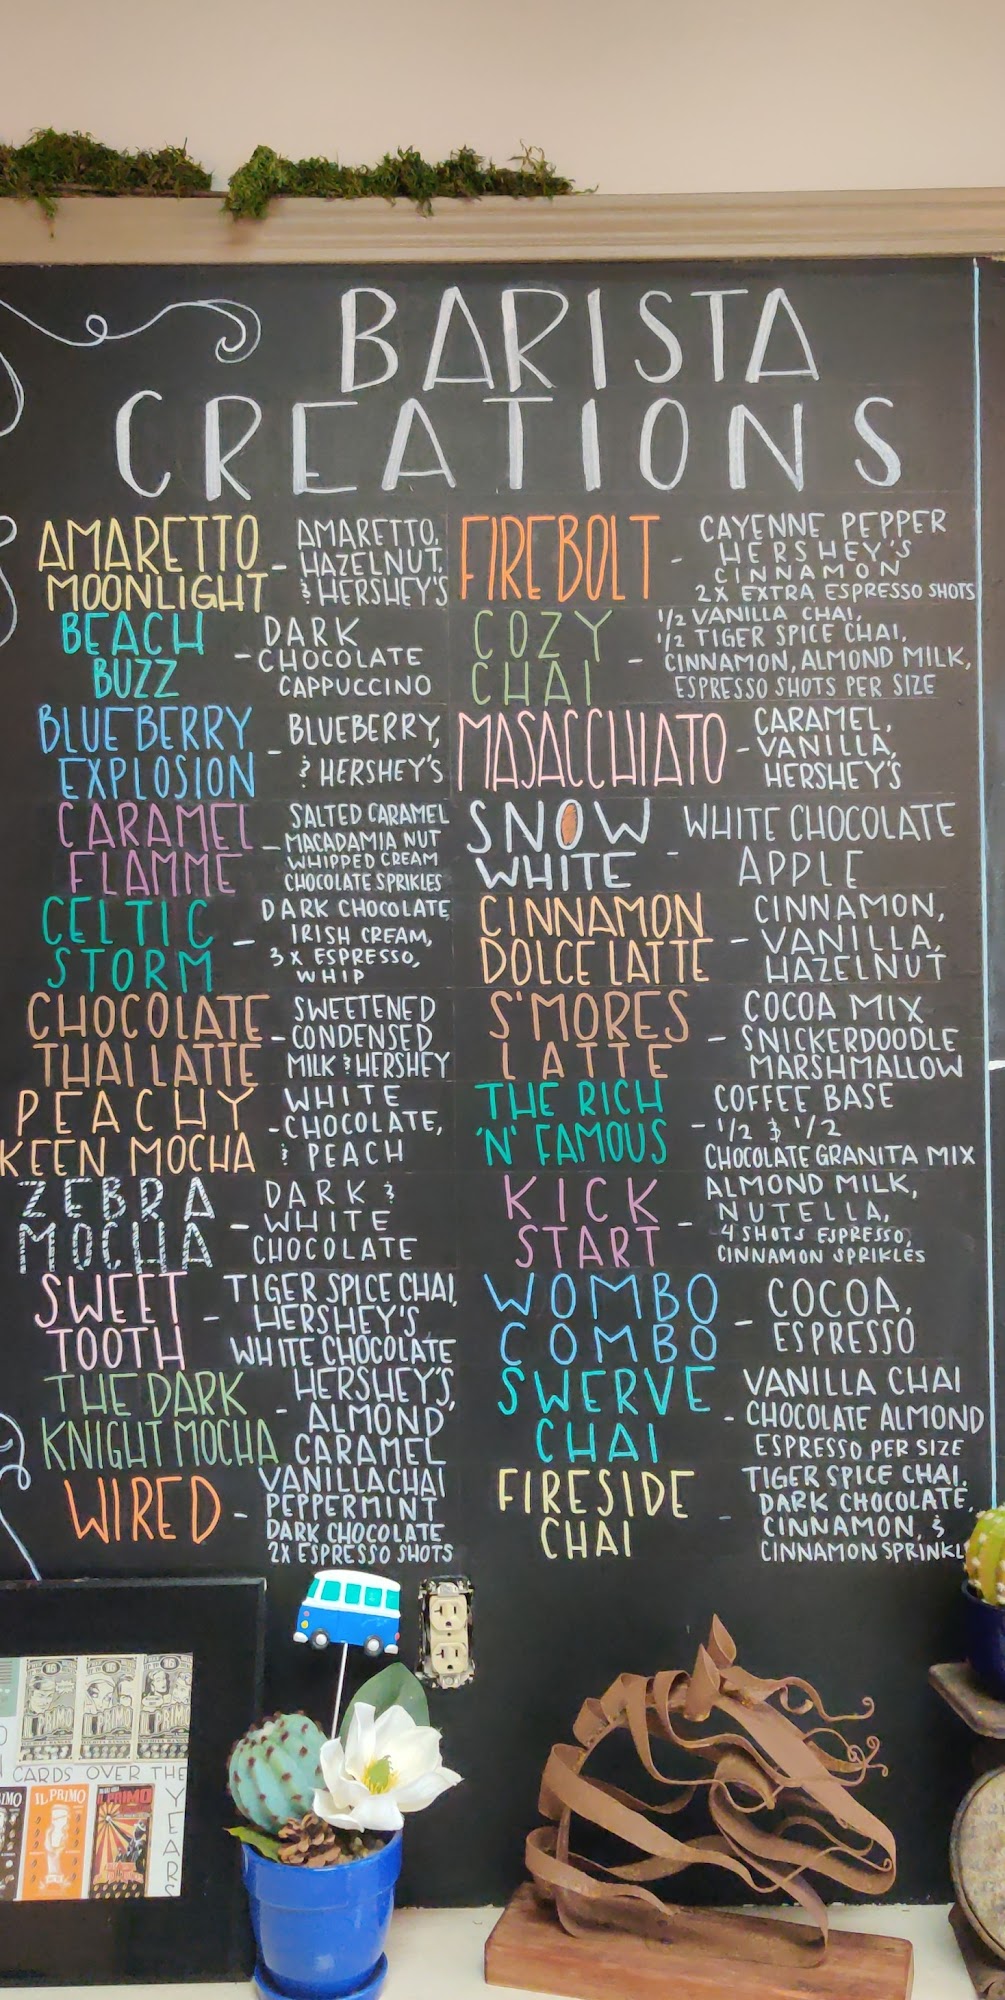 BARISTA
CREATIONS
AMARETTO
MOONLIGHT
- AMARETTO,
HAZELNUT,
& HERSHEY'S
BEACH
BUZZ
- DARK
CHOCOLATE
CAPPUCCINO
BLUEBERRY
EXPLOSION
- BLUEBERRY,
& HERSHEY'S
CARAMEL
FLAMME
- SALTED CARAMEL
MACADAMIA NUT
WHIPPED CREAM
CHOCOLATE SPRIKLES
CELTIC
STORM
- DARK CHOCOLATE
IRISH CREAM,
3 X ESPRESSO,
WHIP
CHOCOLATE
THAI LATTE
- SWEETENED
CONDENSED
MILK & HERSHEY
PEACHY
KEEN MOCHA
- WHITE
CHOCOLATE,
& PEACH
ZEBRA
MOCHA
- DARK &
WHITE
CHOCOLATE
SWEET
TOOTH
- TIGER SPICE CHAI,
HERSHEY'S,
WHITE CHOCOLATE
THE DARK
KNIGHT MOCHA
- HERSHEY'S,
ALMOND
CARAMEL
WIRED
- VANILLA CHAI
PEPPERMINT
DARK CHOCOLATE
2X ESPRESSO SHOTS
FIREBOLT
- CAYENNE PEPPER
HERSHEY'S
CINNAMON
2X EXTRA ESPRESSO SHOTS
COZY
CHAI
- 1/2 VANILLA CHAI,
1/2 TIGER SPICE CHAI,
CINNAMON, ALMOND MILK,
ESPRESSO SHOTS PER SIZE
MASACCHIATO
- CARAMEL,
VANILLA,
HERSHEY'S
SNOW
WHITE
- WHITE CHOCOLATE
APPLE
CINNAMON
DOLCE LATTE
- CINNAMON,
VANILLA,
HAZELNUT
S'MORES
LATTE
- COCOA MIX
SNICKERDOODLE
MARSHMALLOW
THE RICH
'N' FAMOUS
- COFFEE BASE
1/2 & 1/2
CHOCOLATE GRANITA MIX
KICK
START
- ALMOND MILK,
NUTELLA,
4 SHOTS ESPRESSO,
CINNAMON SPRIKLES
WOMBO
COMBO
- COCOA,
ESPRESSO
SWERVE
CHAI
- VANILLA CHAI
CHOCOLATE ALMOND
ESPRESSO PER SIZE
FIRESIDE
CHAI
- TIGER SPICE CHAI,
DARK CHOCOLATE,
CINNAMON, &
CINNAMON SPRINKL
IL PRIMO
CARDS OVER THE
YEARS
IL PRIMO